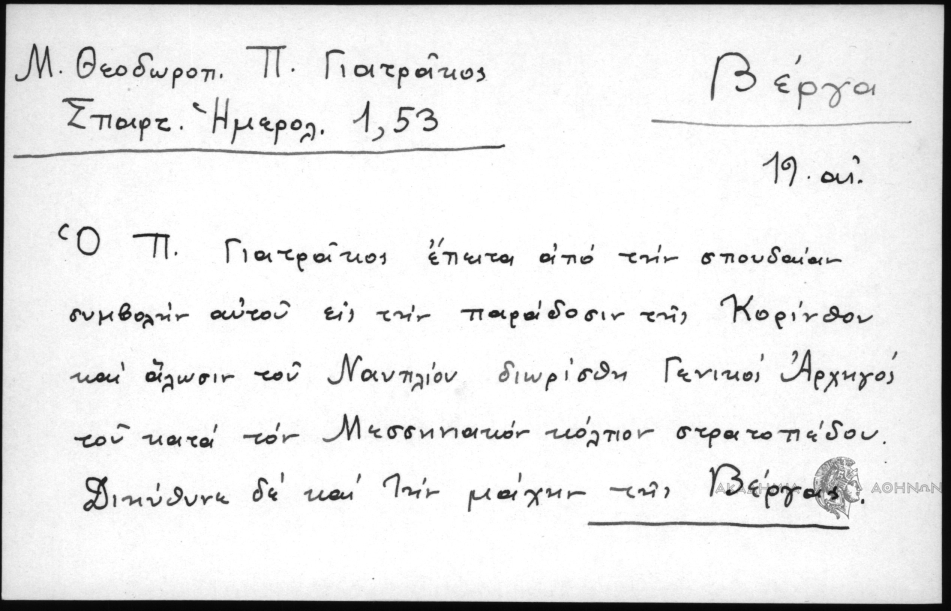 Μ. Θεοδωροπ. Π. Γιατρᾶκος
Σπαρτ. Ἡμερολ. 1,53
Βέργα
19. αἰ.
Ὁ Π. Γιατρᾶκος ἔπειτα ἀπό τήν σπουδαίαν
συμβολήν αὐτοῦ εἰς τήν παράδοσιν τῆς Κορίνθου
καί ἅλωσιν τοῦ Ναυπλίου διωρίσθη Γενικός Ἀρχηγός
τοῦ κατά τόν Μεσσηνιακόν κόλπον στρατοπέδου.
Διηύθυνε δέ καί τήν μάχην τῆς Βέργας.
ΑΚΑΔΗΜΙΑ ΑΘΗΝΩΝ